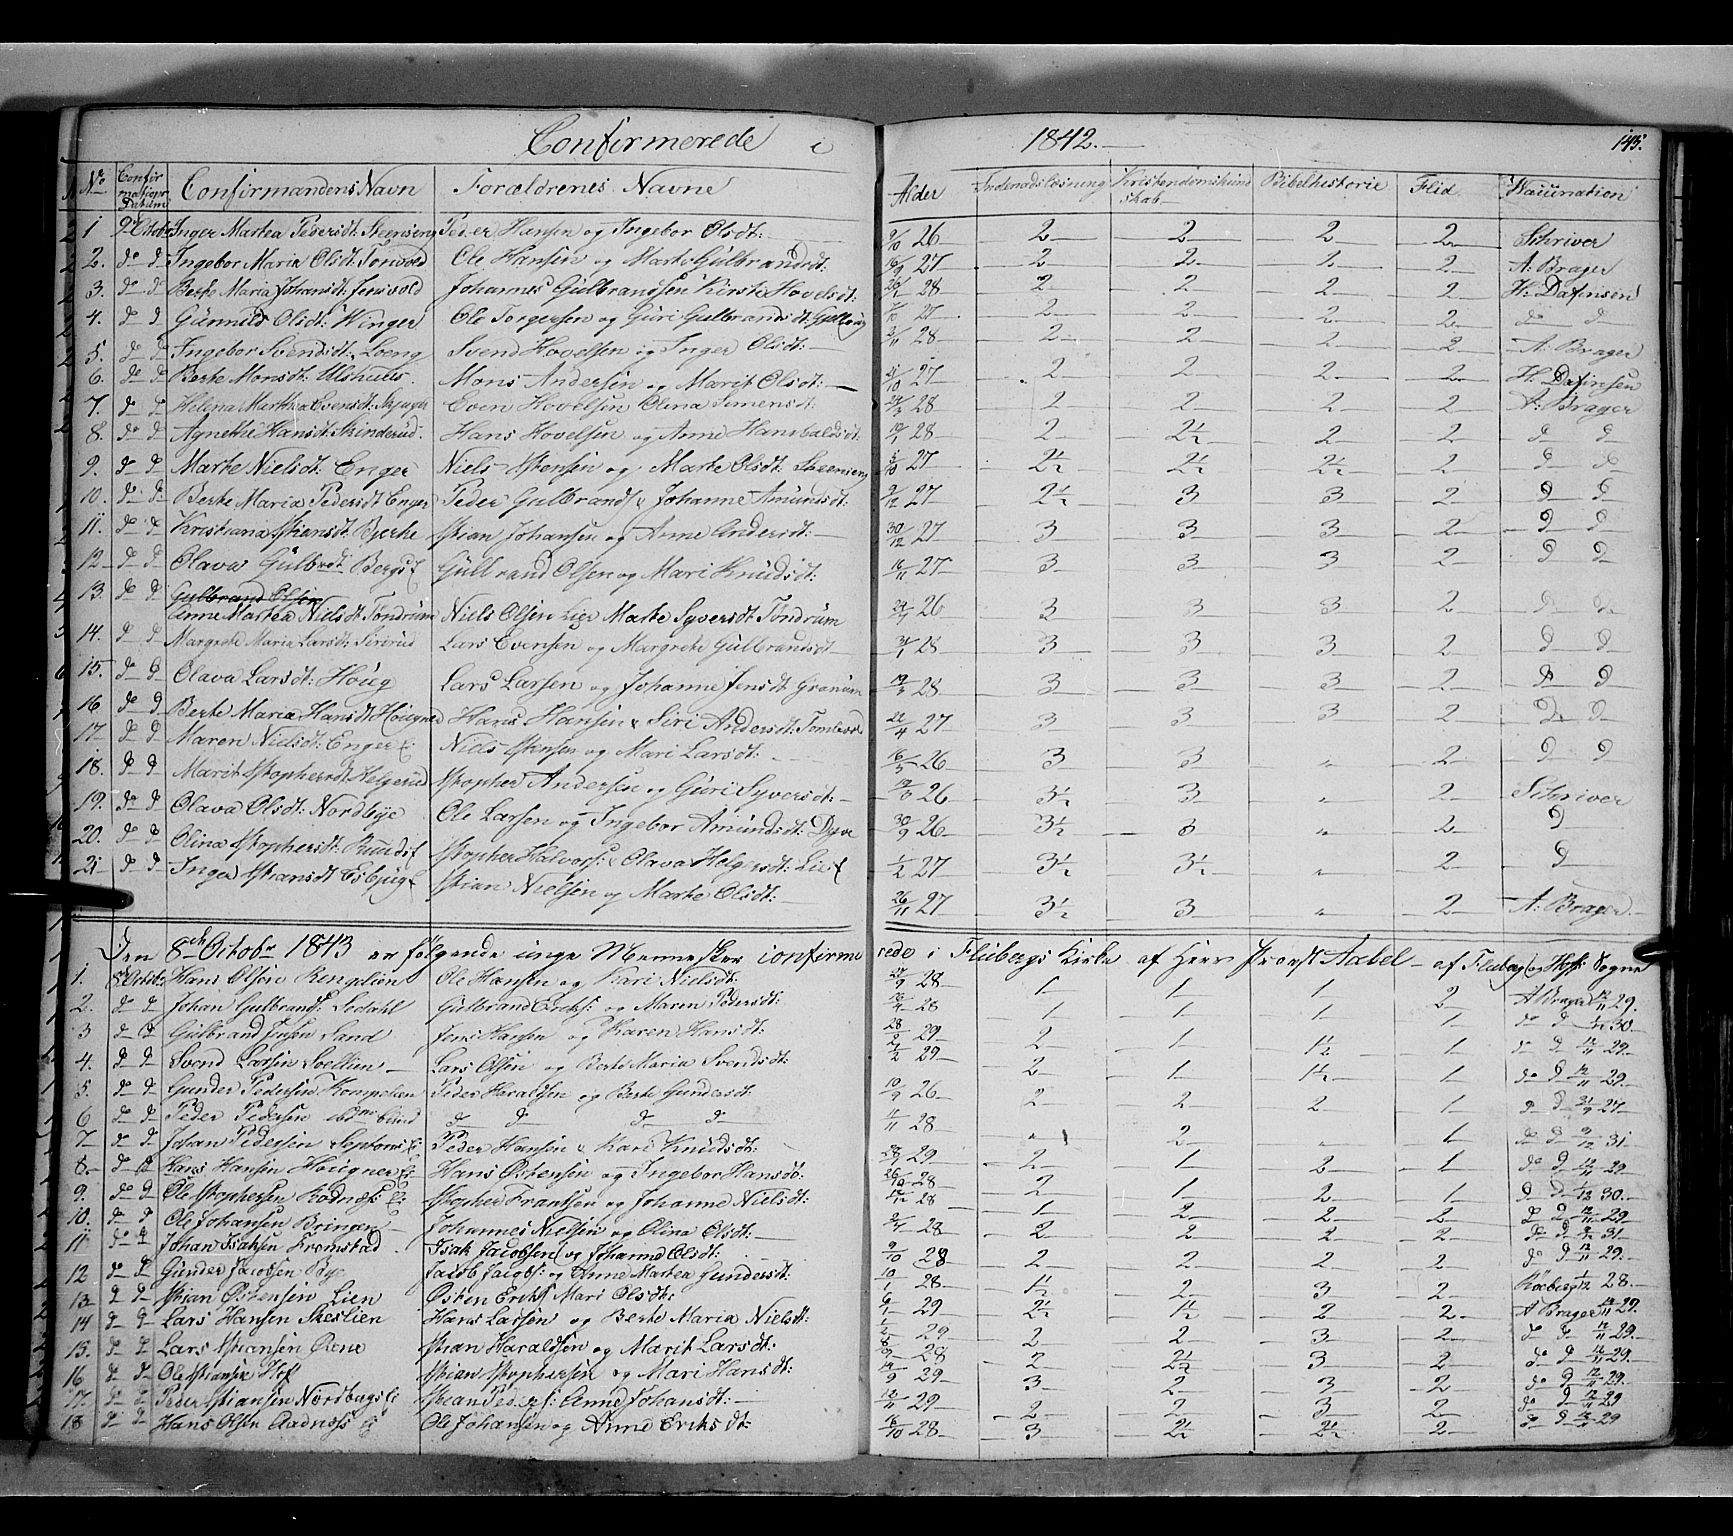 Confirmerede i 1842. 145.
No Confirmations Datum Confirmandens Navn Forældrenes Navne Alder Indenadslæsning Kristendomskundskab Bibelhistorie Flid Vaccination
1 2 Octob Inger Martea Pedersdt Steenseng Peder Hansen og Ingebor Olsdt: 2/10 26 2 2 2 2 Schriver
2. do d Ingebor Maria Olsdt: Tonvold Ole Hansen og Marte Gulbrandsdt: 16/9 27 2 2 2 2 A: Brager
3. do d Berte Maria Johansdt: Jensvold Johannes Gulbrandsen Kirsti Hovelsdt: 28 2 2 2 2 H: Dafinsen
4. d d Gunnild Olsdt: Winger Ole Torgersen og Guri Gulbrandsdt: 27 2 2 2 2 d d
5. d d Ingebor Svendsdt: Loeng Svend Hovelsen og Inger Olsdt: 28 2 2 2 2 A: Brager
6. do d Berte Monsdt: Ulshuus. Mons Andersen og Marit Olsdt: 27 2 2 2 2 H: Dafinsen
7. d d Helena Marthea Evensdt: Skjager Even Hovelsen Olina Simensdt: 28 2 2 2 2 A: Brager
8. do d Agnethe Hansdt: Skinderud. Hans Hovelsen og Anne Hansdt: 28 2 2½ 2 2 d d
9. do d Marte Nielsdt: Enger Niels Stensen og Marte Olsdt: Steenseng 27 2½ 2½ 2½ 2 d d
10. d d Berte Maria Pedersdt Enger Peder Gulbrands & Johanne Amundsdt: 9/12 27 2½ 3 3 2 d d
11. d d Kristiana Stiansdt: Bjerke Stian Johansen og Anne Andersdt: 30/12 27 3 3 3 2 d d
12. d d Olava Gulbrdt: Bergs E Gulbrand Olsen og Mari Knudsdt: 16/11 27 3 3 3 2 d d
13. d d Gulbrand Olsen
Anne Martea Nielsdt Tondrum Niels Olsen Lie Marte Syversdt Tondrum 26 3 3 3 2 d d
14. d d Margrete Maria Larsdt: Lars Evensen og Margrete Gulbrandsdt 28 3 3 3 2 d d
15. d d Olava Larsdt: Houg Lars Larsen og Johanne Jensdt Granum 19/3 28 3 3 3 2 d d
16 d d Berte Maria Hansdt Hougner Hans Hansen & Siri Andersdt: Tomlevold 22/4 27 3 3 3 2 d d
17. d d Maren Nielsdt: Enger E: Niels Stensen og Mari Larsdt: 16/5 26 3 3 " 2 d d
18. d d Marit Stophersdt Helgerud Stopher Andersen og Guri Syversdt: 26 3½ 3 " 2 Schriver
19. d d Olava Olsdt: Nordbye Ole Larsen og Ingebor Amundsdt: Dyve 30/9 26 3½ 3 " 2 d
20. d d Olina Stophersdt: Stopher Halvors: & Olava Helgesdt: Lie E 1/2 27 3½ 3½ " 2 d
21 d d Inger Stiansdt Esbjug E Stian Nielsen og Marte Olsdt: 26/11 27 3½ 3 " 2 A: Brager
Den 8de Octobr 1843 er følgende unge Mennesker confirmerede i Flubergs Kirke af Herr Provst Aabel af Fluberg og Hofs Sogne
1. 8 Octobr Hans Olsen Rengelion Ole Hansen og Kari Nielsdt: 28 1 1 1 2 A Brager 12/11 29.
2. d d Johan Gulbrands: Lidahl Gulbrand Eriks: og Maren Pedersdt: 28 1 1 1 1 do d 30
3 d d Gulbrand Jensen Sand Jens Hansen og Karen Hansdt: 28/2 29 2 1 1½ 1 d d 12/11 29.
4. d d Svend Larsen Sollien Lars Olsen og Berte Maria Svendsdt: 29 2 1 1½ 1 do d 12/11 29.
5. d d Gunder Pedersen Kompelien Peder Haraldsen og Berte Gundersdt: 10/9 26 2 2 2 1 d d 21/9 27
6 d d Peder Pedersen ibdm blind d d d d 11/11 28 " 2 " 1 d d 9/12 31
7. d d Johan Pedersen Peder Hansen & Kari Knudsdt: 29 2 1 2 1 do d 12/11 29
8. d d Hans Hansen Hougner E: Hans Østensen og Ingebor Hansdt: 28 2 1 2 1 d d 1/12 30.
9. do d Ole Stophersen Rodnæs: E: Stopher Frantsen og Johanne Nielsdt: 28 1 2 2 2 d d 12/11 29
10. d d Ole Johansen Bringen Johannes Nielsen og Olina Olsdt: 28 2 2 2 2 d d 31
11 do d Johan Isaksen Fromstad Isak Jacobsen og Johanne Olsdt: 9/10 28 2 2 2 2 do d 12/11 29.
12 d d Gunder Jacobsen Bye Jacob Jacobs: og Anne Martea Gundersdt: 28 1½ 2 3 2 1/12 28.
13 d d Stian Østensen Lien Østen Eriks Mari Olsdt: 6/1 29 2½ 1½ 2 2 A Brager 12/11 29.
14 d d Lars Hansen Skeslien Hans Larsen og Berte Maria Nielsdt: 29 2 2 3 2 d d 12/11 29.
15. d d Lars Stiansen Stian Haraldsen og Marit Larsdt: 28 2 2½ 3 2 do d 29.
16 d d Ole Stiansen Hof Stian Stophersen og Mari Hansdt: 29 3 2 3 2 do d 12/11 29.
17. d d Peder Stiansen Nordhags E Stian Peders: Anne Johansdt: 12/11 29 2 2 3 2 do d 12/11 29
18 d d Hans Olsen Aadnæs E Ole Johansen og Anne Eriksdt: 16/10 28 3 2½ 2½ 2 d d 29